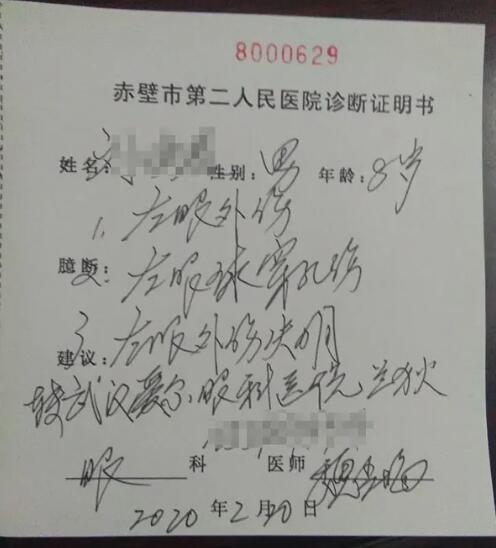 8000629
赤壁市第二人民医院诊断证明书
姓名: 性别: 男 年龄: 8岁
1. 左眼外伤
臆断: 左眼球穿孔伤
3 建议: 左眼外伤失明
转武汉爱尔眼科医院
眼 科 医师
2020 年 2 月 20 日